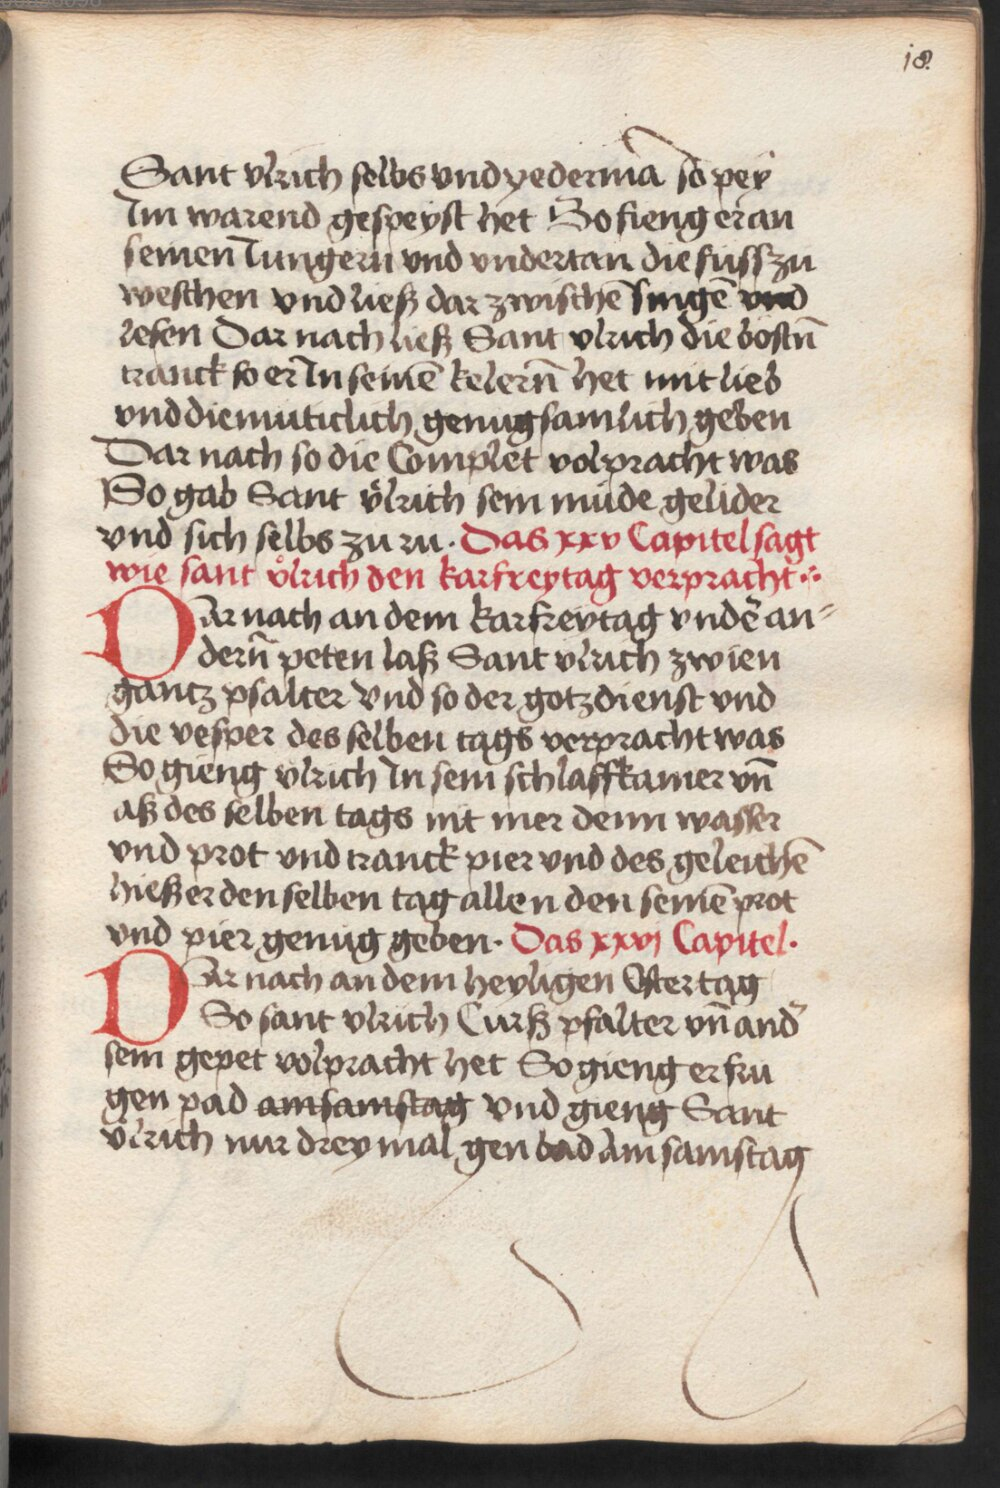 18.
Sant vlrich selbs vnd yedermā so pey
Im warend gespeyst het So fieng er an
seinen Iungern vnd vndertan die fuss zu
weschen vnd ließ dar zwischē singē vnd
lesen Dar nach ließ Sant vlrich die bostn̄
tranck so er In seinē kelern̄ het mit lieb
vnd diemuticlich genugsamlich geben
Dar nach so die Complet volpracht was
So gab Sant vͦlrich sein müde gelider
vnd sich selbs zu ru. Das xxv Capitel sagt
wie sant vͦlrich den karfreytag verpracht
Dar nach an dem karfreytag vndē an⸗
dern̄ peten laß Sant vlrich zwien
gantz psalter vnd so der gotzdienst vnd
die vesper des selben tags verpracht was
So gieng vlrich In sein schlaffkamer vn̄
aß des selben tags nit mer denn wasser
vnd prot vnd tranck pier vnd des geleichē
hieß er den selben tag allen den seinē prot
vnd pier genug geben. Das xxvj Capitel.
Dar nach an dem heyligen Ostertag
So sant vlrich Curß psalter vn̄ and̄
sein gepet volpracht het So gieng er fru
gen pad am samstag vnd gieng Sant
vͦlrich nur drey mal gen bad am samstag